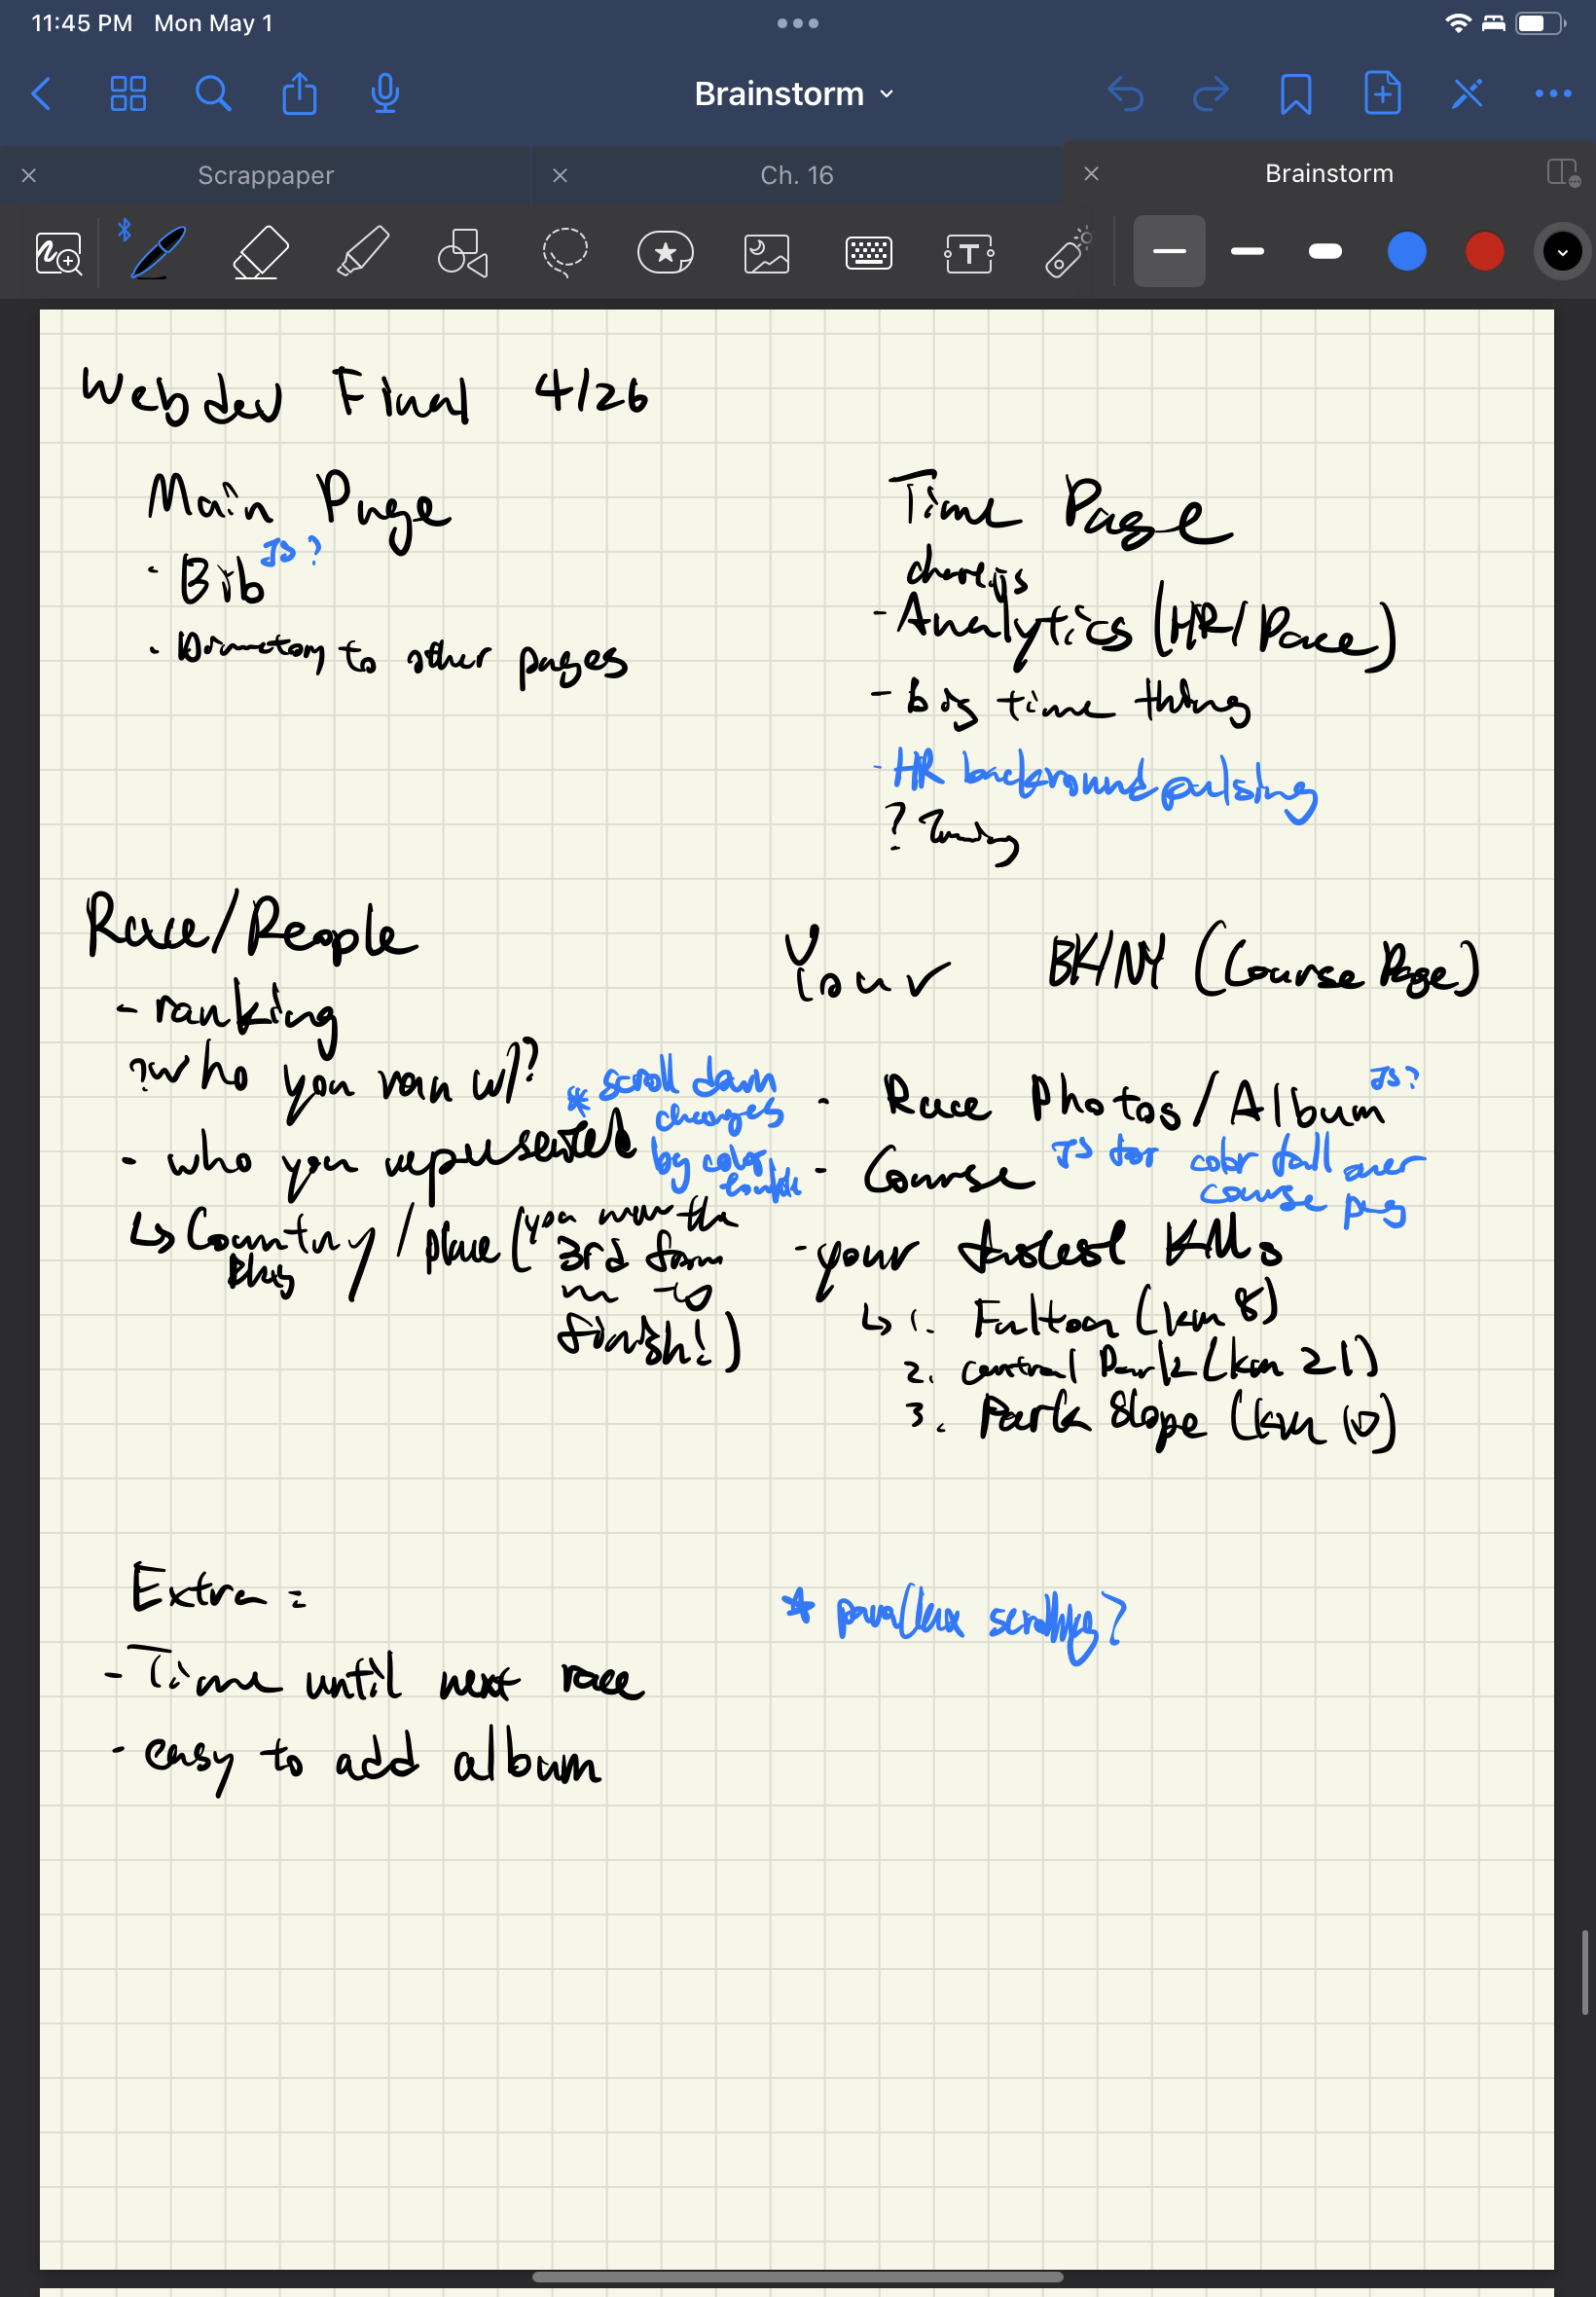 11:45 PM Mon May 1
Brainstorm
Scrappaper
Ch. 16
Brainstorm
T
Webdev Final 4/26
Main Page
- Bib JS?
- to other pages
Time Page
- Analytics (HR/Pace)
- big time thing
- HR background pulsing
?
Race/People
- ranking
? who you ran w/?
- who you represented
↳ Country/place (you were the
3rd from
to
finish!)
* scroll down
changes
by color
Your BK/NY (Course Page)
- Race Photos/Album JS?
- Course JS for color fall over
course pag
- your fastest KMs
↳ 1. Fulton (km 8)
2. central Park (km 21)
3. Park Slope (km 10)
Extra:
- Time until next race
- easy to add album
* parallax scrolling?